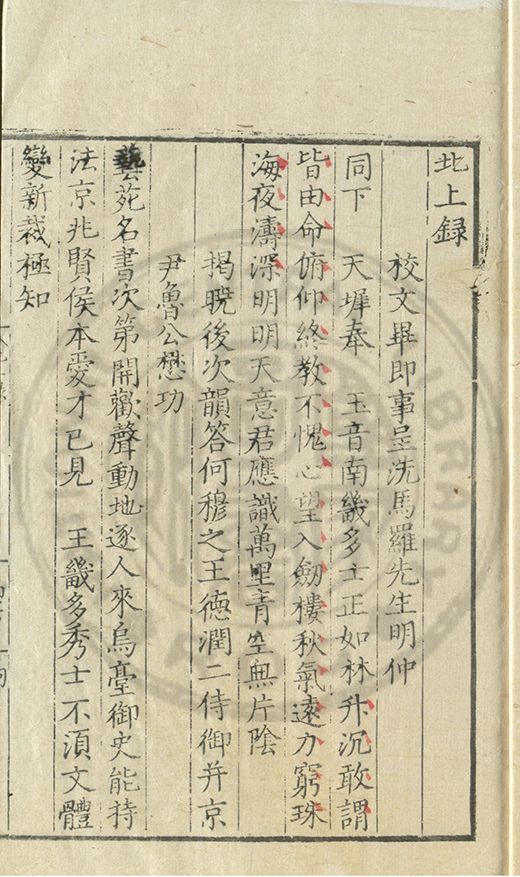 北上録
校文畢即事呈洗馬羅先生明仲
同下　天墀奉　玉音南畿多士正如林升沉敢謂
皆由命俯仰終教不愧心望入劒樓秋氣遠力窮珠
海夜濤深明明天意君應識萬里青空無片陰
揭曉後次韻答何穆之王德潤二侍御并京
尹魯公懋功
藝苑名書次第開歡聲動地逐人來烏臺御史能持
法京兆賢侯本愛才已見　王畿多秀士不湏文體
變新裁極知